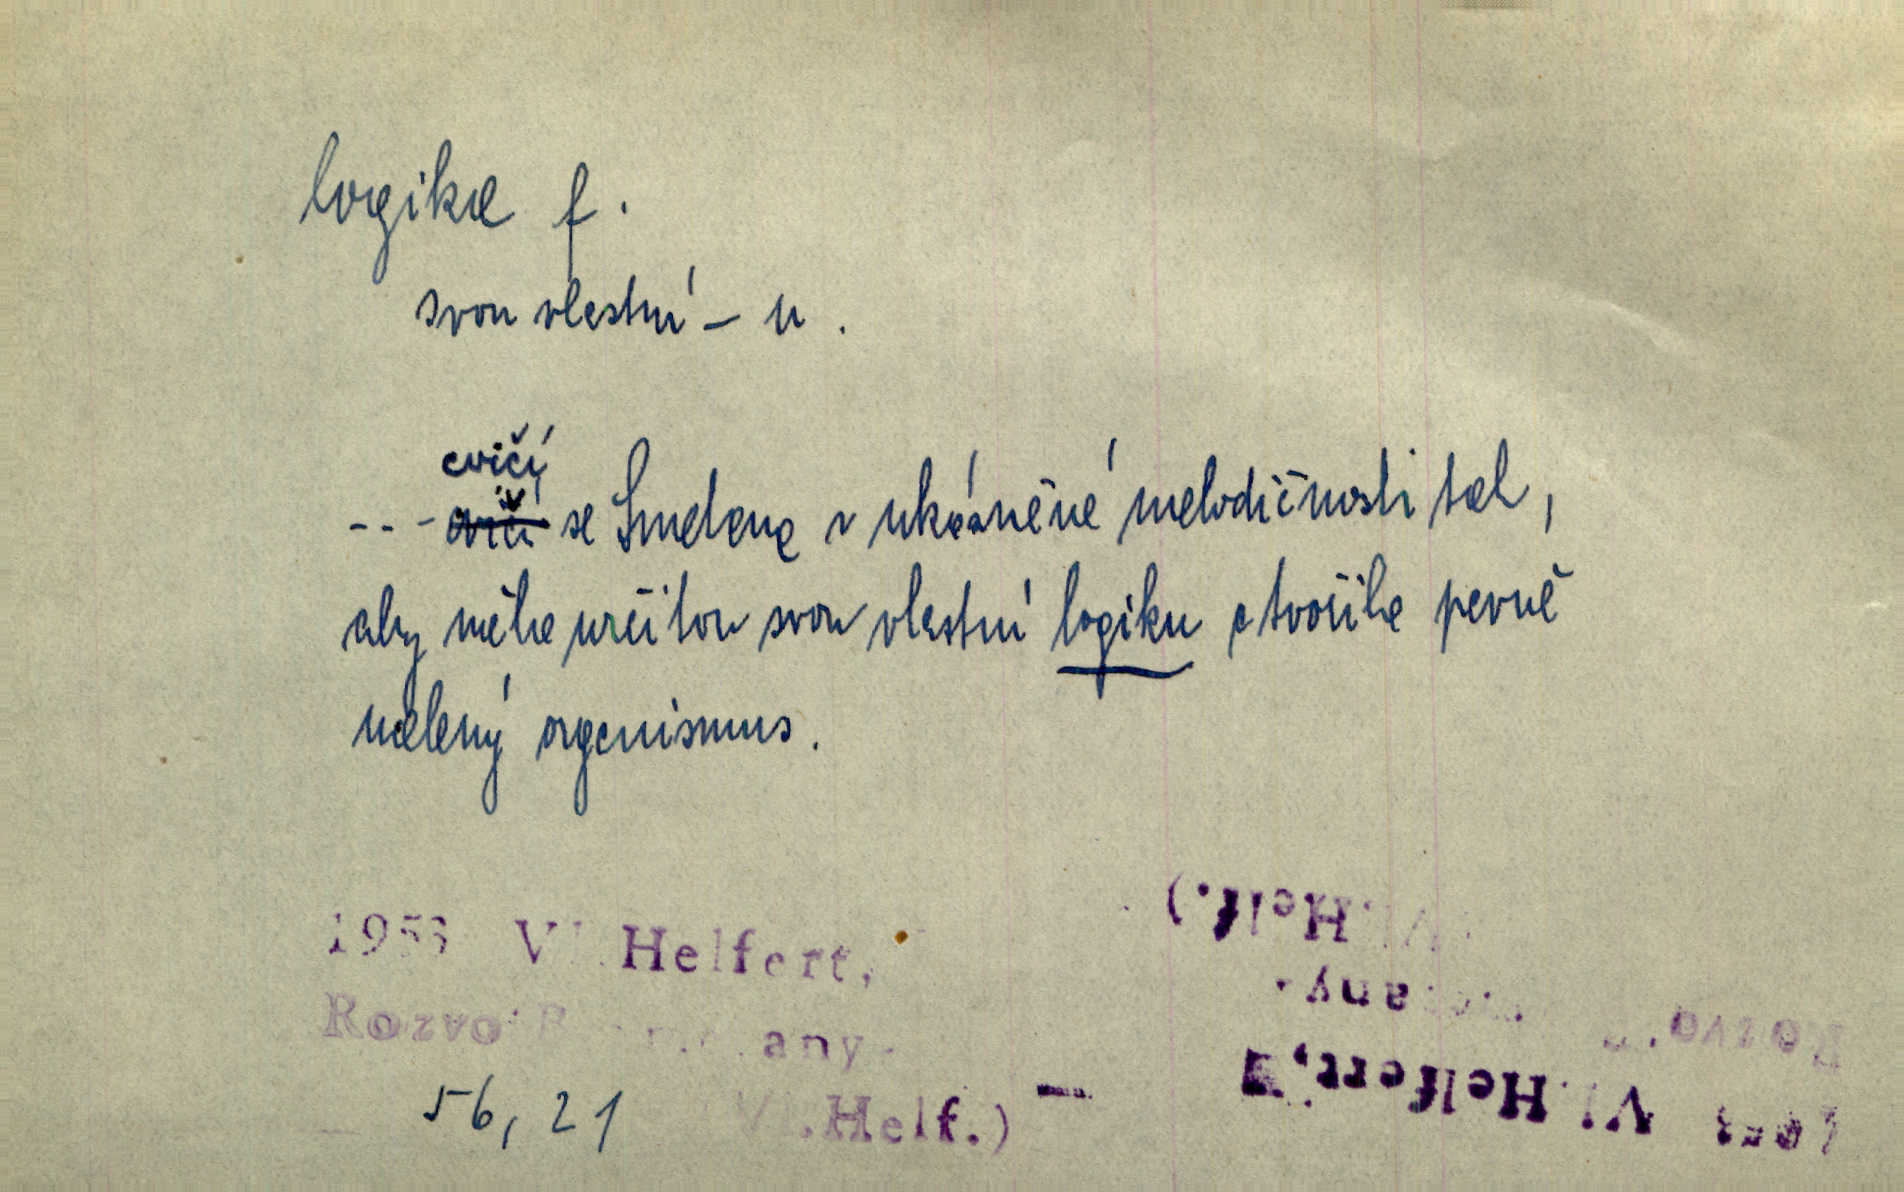 logika f.
svou vlastní – u.
cvičí
--- cvičí se Smetana v ukázněné melodičnosti tak,
aby měla určitou svou vlastní logiku a tvořila pevně
ucelený organismus.
1953 Vl. Helfert,
any-
56, 21 (Vl.Helf.)
Vl.Helf.)
any-
Vl.Helfert,